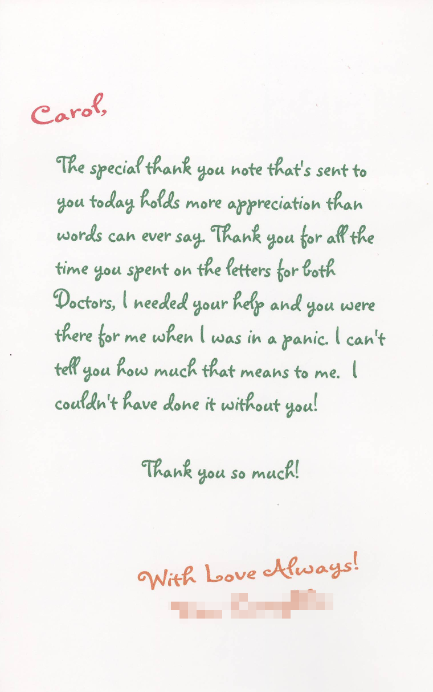 Carol,
The special thank you note that's sent to
you today holds more appreciation than
words can ever say. Thank you for all the
time you spent on the letters for both
Doctors, I needed your help and you were
there for me when I was in a panic. I can't
tell you how much that means to me.  I
couldn't have done it without you!
Thank you so much!
With Love Always!